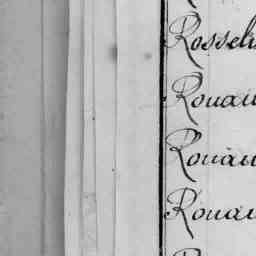 Rosseli
Rouau
Rouau
Rouau